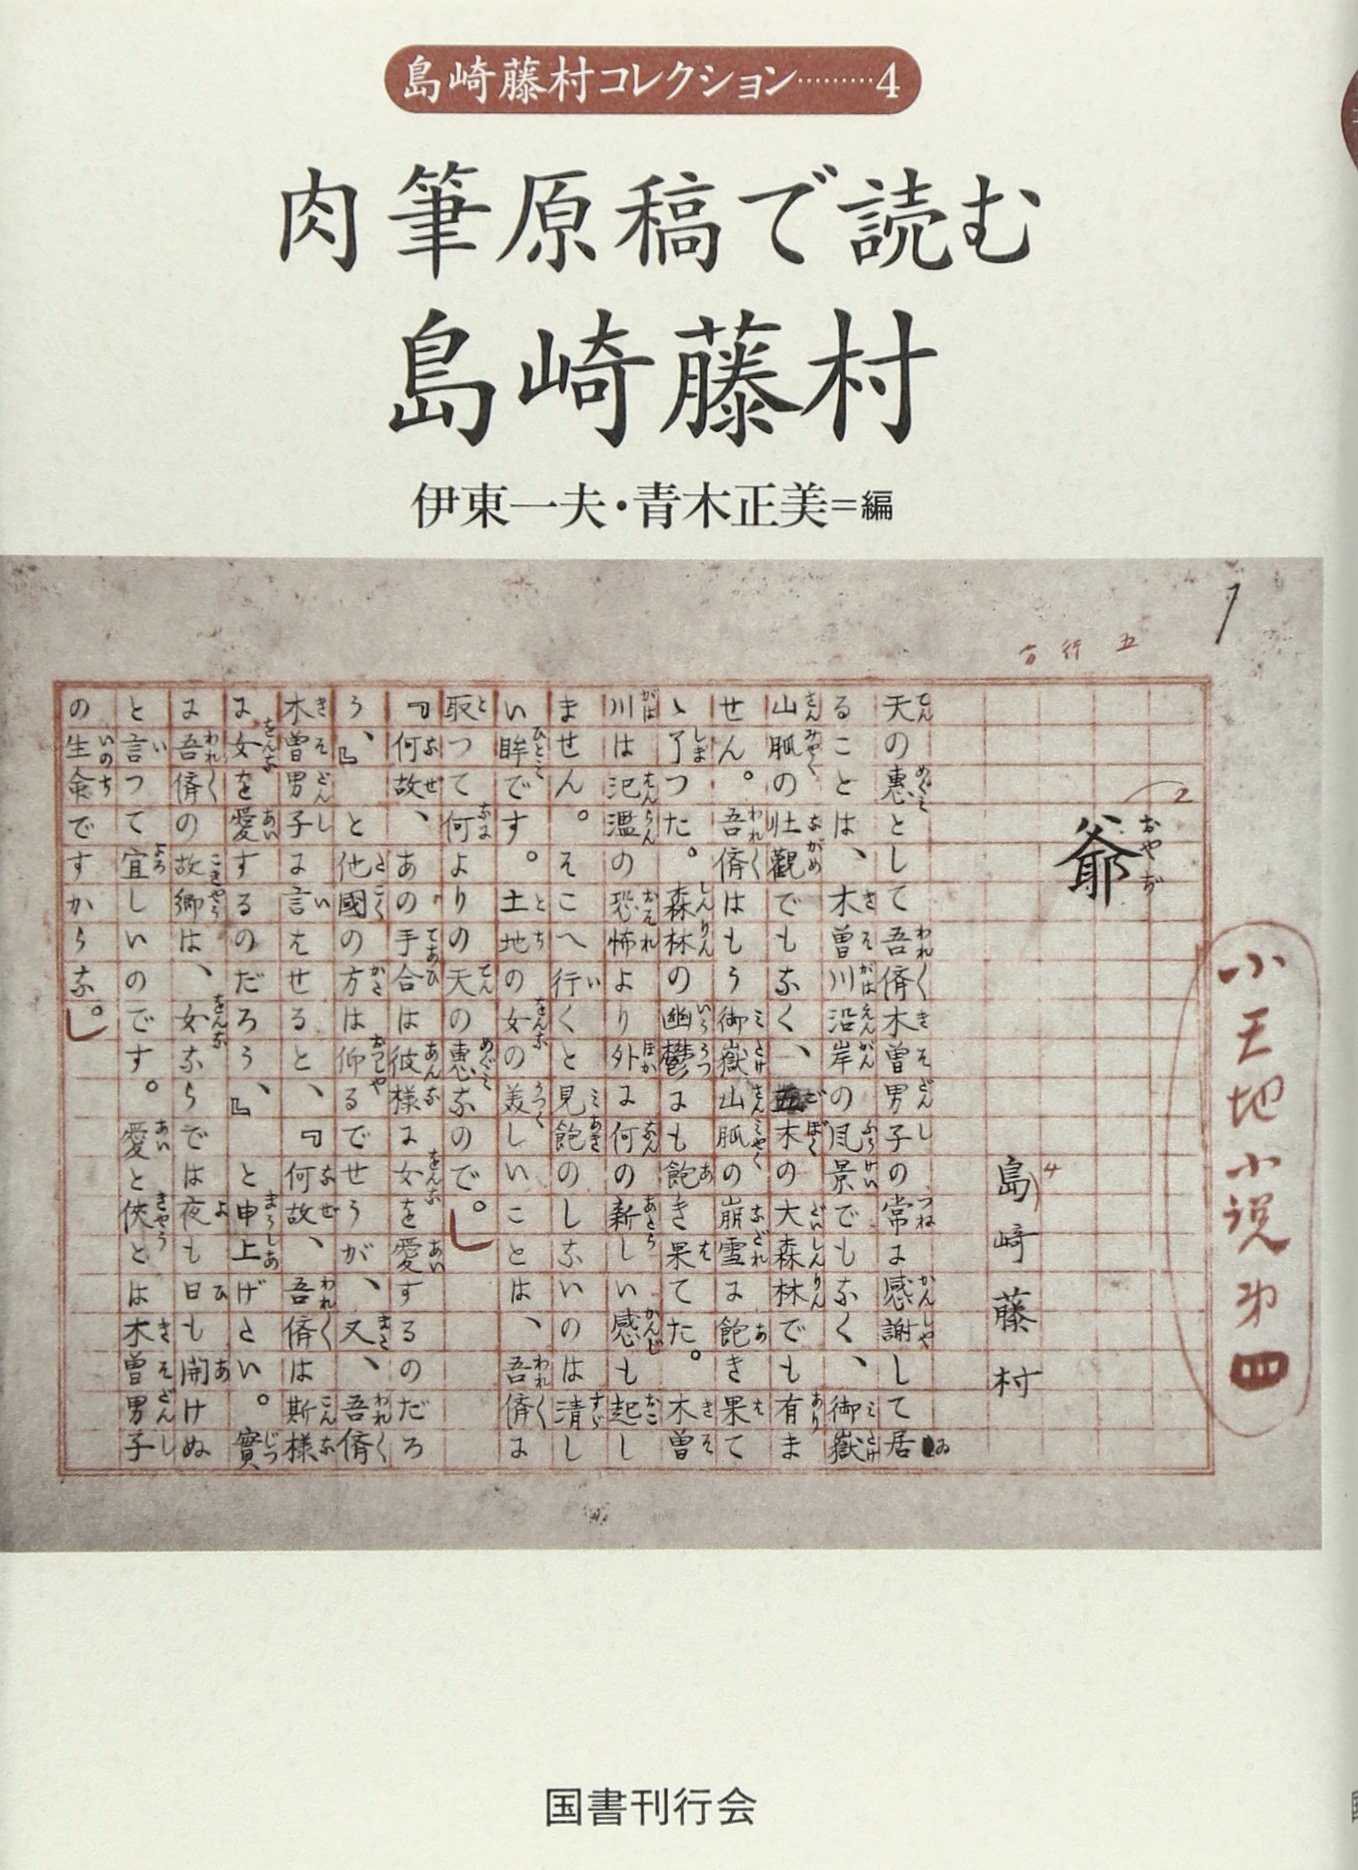 島崎藤村コレクション………4
肉筆原稿で読む
島崎藤村
伊東一夫・青木正美=編
1
五行方
小天地小説第四
爺
おやぢ
島崎藤村
天の惠として吾儕木曽男子の常に感謝して居
ることは、木曽川沿岸の風景でもなく、御嶽
山脈の壮觀でもなく、五木の大森林でも有ま
せん。吾儕はもう御嶽山脈の崩雪に飽き果て
ゝ了つた。森林の幽鬱にも飽き果てた。木曽
川は氾濫の恐怖より外に何の新しい感も起し
ません。そこへ行くと見飽のしないのは清し
い眸です。土地の女の美しいことは、吾儕に
取つて何よりの天の惠なので。
『何故、あの手合は彼様に女を愛するのだろ
う、』と他國の方は仰るでせうが、又、吾儕
木曽男子に言はせると、『何故、吾儕は斯様
に女を愛するのだろう、』と申上げたい。實
に吾儕の故郷は、女ならでは夜も日も開けぬ
と言つて宜しいのです。愛と侠とは木曽男子
の生命ですからな。
国書刊行会